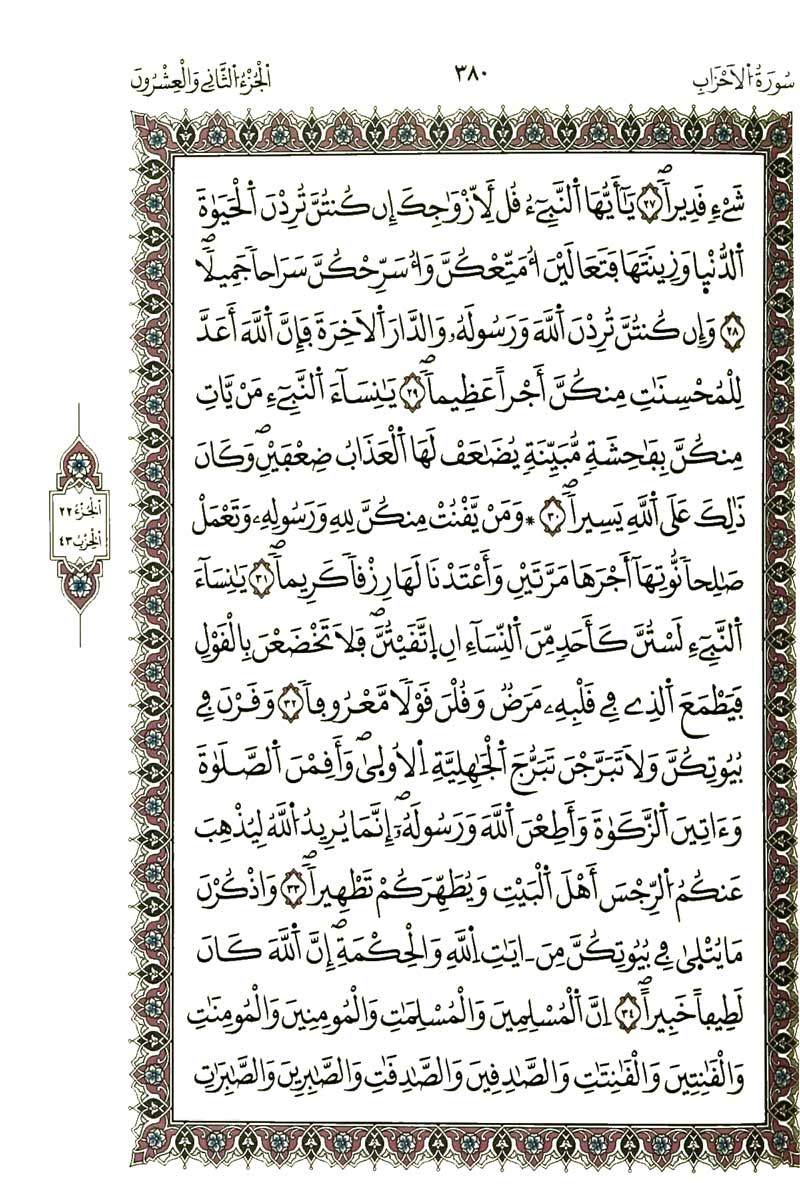 سُورَةُ الَاحْزَابِ
٣٨٠
اَلْجُزْءُ الثَّانِي وَالْعِشْرُونَ
شَےْءٖ قَدِيراٗۖ ٢٧ يَٰٓأَيُّهَا اَ۬لنَّبِےٓءُ قُل لِّأَزْوَٰجِكَ إِن كُنتُنَّ تُرِدْنَ اَ۬لْحَيَوٰةَ
اَ۬لدُّنْي۪ا وَزِينَتَهَا فَتَعَالَيْنَ أُمَتِّعْكُنَّ وَأُسَرِّحْكُنَّ سَرَاحاٗ جَمِيلاٗۖ
٢٨ وَإِن كُنتُنَّ تُرِدْنَ اَ۬للَّهَ وَرَسُولَهُۥ وَالدَّارَ اَ۬لَاخِرَةَ فَإِنَّ اَ۬للَّهَ أَعَدَّ
لِلْمُحْسِنَٰتِ مِنكُنَّ أَجْراً عَظِيماٗۖ ٢٩ يَٰنِسَآءَ اَ۬لنَّبِےٓءِ مَنْ يَّاتِ
مِنكُنَّ بِفَٰحِشَةٖ مُّبَيِّنَةٖ يُضَٰعَفْ لَهَا اَ۬لْعَذَابُ ضِعْفَيْنِۖ وَكَانَ
ذَٰلِكَ عَلَي اَ۬للَّهِ يَسِيراٗۖ ٣٠ ۞وَمَنْ يَّقْنُتْ مِنكُنَّ لِلهِ وَرَسُولِهِۦ وَتَعْمَلْ
صَٰلِحاٗ نُّوتِهَآ أَجْرَهَا مَرَّتَيْنِ وَأَعْتَدْنَا لَهَا رِزْقاٗ كَرِيماٗۖ ٣١ يَٰنِسَآءَ
اَ۬لنَّبِےٓءِ لَسْتُنَّ كَأَحَدٖ مِّنَ اَ۬لنِّسَآءِ اِنِ اِ۪تَّقَيْتُنَّۖ فَلَا تَخْضَعْنَ بِالْقَوْلِ
فَيَطْمَعَ اَ۬لذِے فِے قَلْبِهِۦ مَرَضٞ وَقُلْنَ قَوْلاٗ مَّعْرُوفاٗۖ ٣٢ وَقَرْنَ فِے
بُيُوتِكُنَّ وَلَا تَبَرَّجْنَ تَبَرُّجَ اَ۬لْجَٰهِلِيَّةِ اِ۬لُاول۪يٰۖ وَأَقِمْنَ اَ۬لصَّلَوٰةَ
وَءَاتِينَ اَ۬لزَّكَوٰةَ وَأَطِعْنَ اَ۬للَّهَ وَرَسُولَهُۥٓۖ إِنَّمَا يُرِيدُ اُ۬للَّهُ لِيُذْهِبَ
عَنكُمُ اُ۬لرِّجْسَ أَهْلَ اَ۬لْبَيْتِ وَيُطَهِّرَكُمْ تَطْهِيراٗۖ ٣٣ وَاذْكُرْنَ
مَا يُتْل۪يٰ فِے بُيُوتِكُنَّ مِنَ اٰيَٰتِ اِ۬للَّهِ وَالْحِكْمَةِۖ إِنَّ اَ۬للَّهَ كَانَ
لَطِيفاً خَبِيراًۖ ٣٤ اِنَّ اَ۬لْمُسْلِمِينَ وَالْمُسْلِمَٰتِ وَالْمُومِنِينَ وَالْمُومِنَٰتِ
وَالْقَٰنِتِينَ وَالْقَٰنِتَٰتِ وَالصَّٰدِقِينَ وَالصَّٰدِقَٰتِ وَالصَّٰبِرِينَ وَالصَّٰبِرَٰتِ
اَلْجُزْءُ ٢٢
اَلْحِزْبُ ٤٣